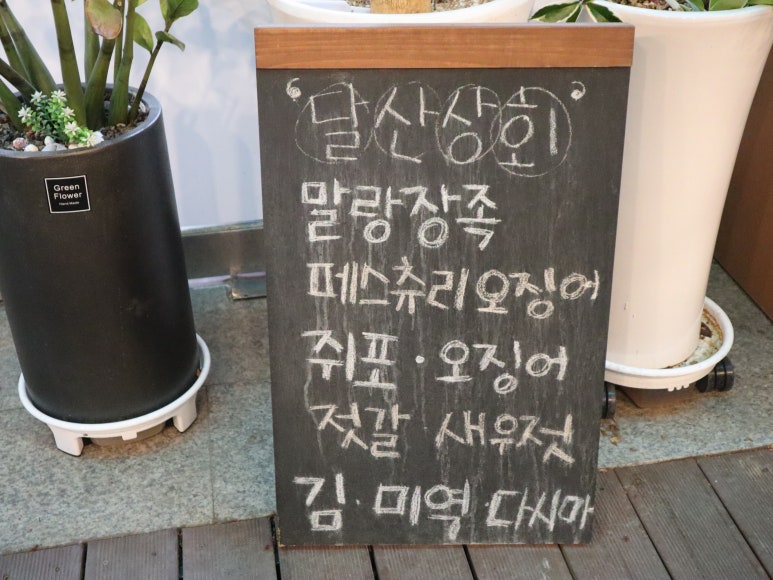 Green
Flower
Hand Made
"달산상회"
말랑장족
페스츄리오징어
쥐포·오징어
젓갈 새우젓
김·미역·다시마